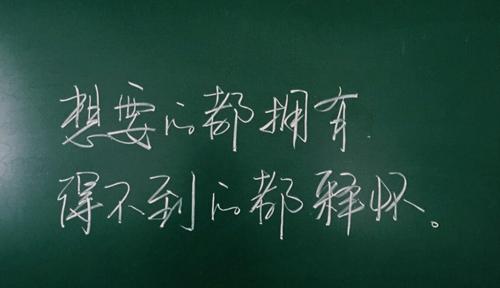 想要的都拥有.
得不到的都释怀。